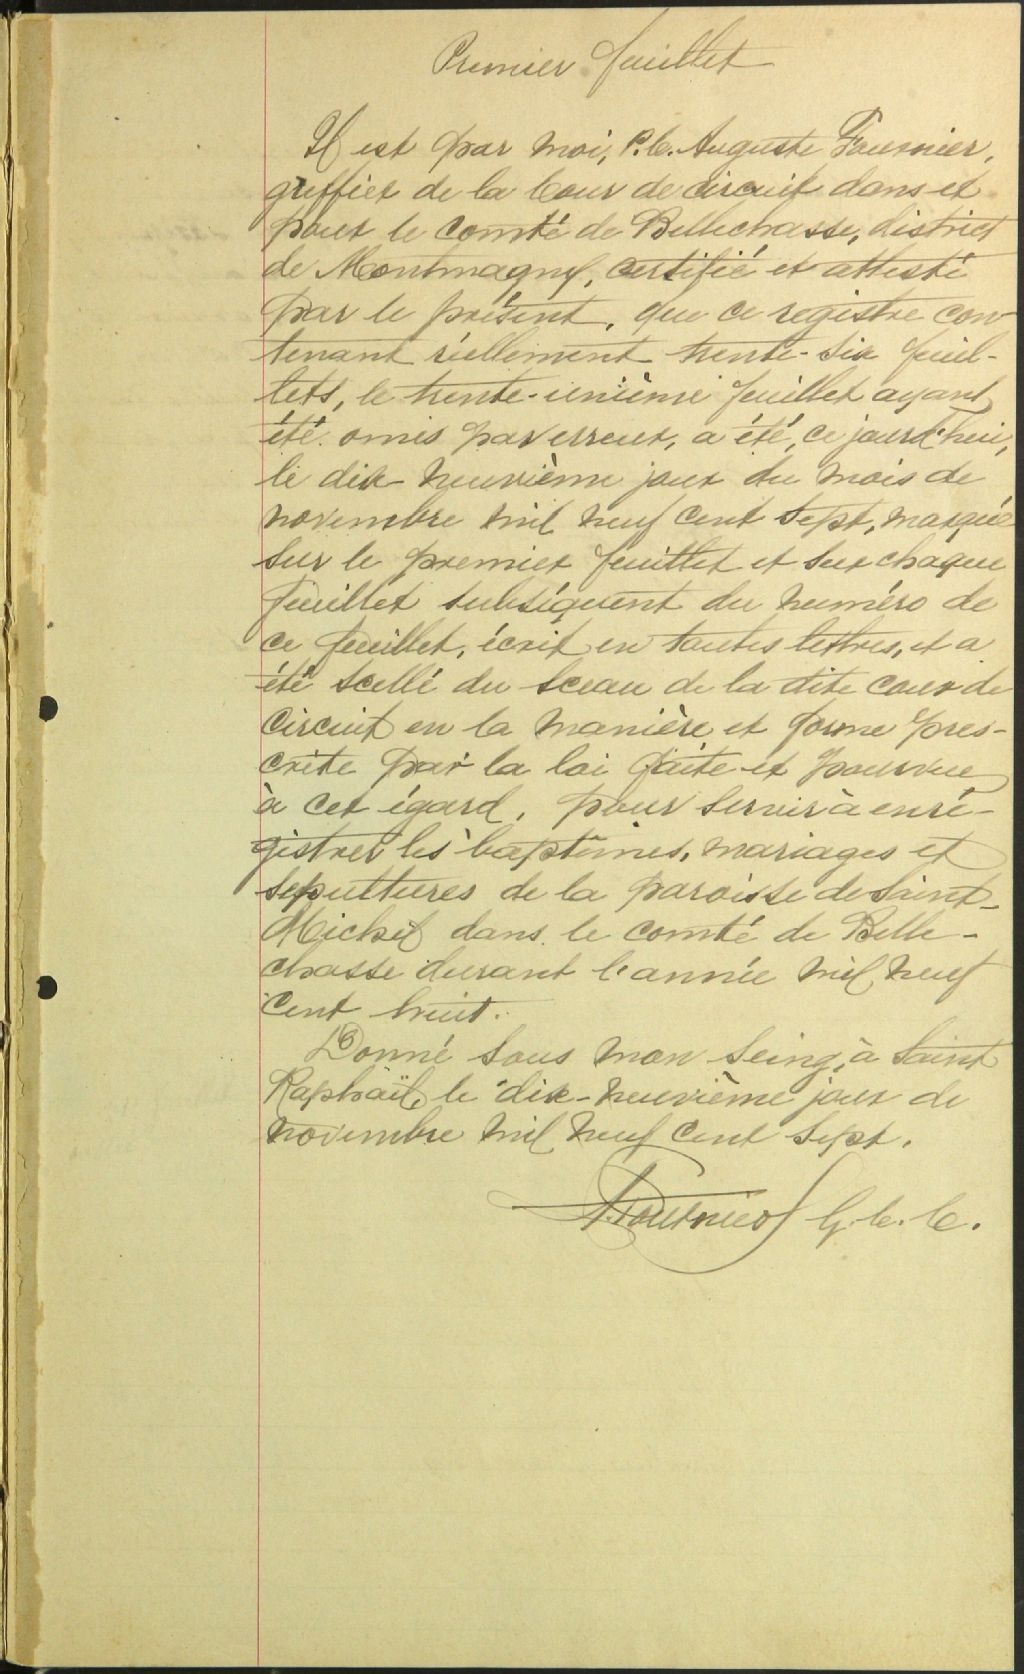 Premier feuillet
Il est par moi, P.C. Auguste Fournier,
greffier de la Cour de circuit dans et
pour le comté de Bellechasse, district
de Montmagny, certifié et attesté
par le présent, que ce registre con-
tenant réellement trente-six feuil-
lets, le trente-unième feuillet ayant
été omis par erreur, a été, ce jourd'hui,
le dix-neuvième jour du mois de
novembre mil neuf cent sept, marqué
sur le premier feuillet et sur chaque
feuillet subséquent du numéro de
ce feuillet, écrit en toutes lettres, et a
été scellé du sceau de la dite cour de
Circuit en la manière et forme pres-
crite par la loi faite et pourvue
à cet égard, pour servir à enré-
gistrer les baptêmes, mariages et
sépultures de la paroisse de Saint-
Michel dans le comté de Belle-
chasse durant l'année mil neuf
cent huit.
Donné sous mon seing, à Saint
Raphaël, le dix-neuvième jour de
novembre mil neuf cent sept.
A. Fournier G.C.C.